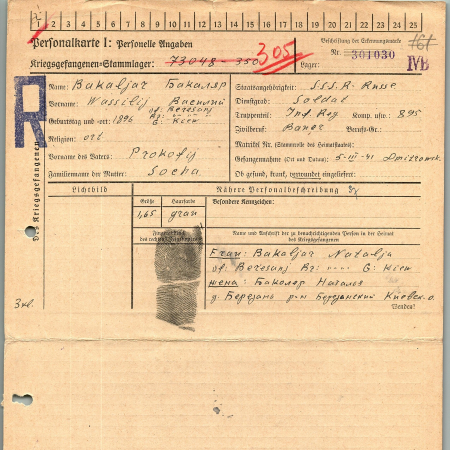 1 2 3 4 5 6 7 8 9 10 11 12 13 14 15 16 17 18 19 20 21 22 23 24 25
Personalkarte I: Personelle Angaben
Beschriftung der Erkennungsmarke
161
Kriegsgefangenen-Stammlager: 73048 - 350 305
Nr. 301030
Lager: IVB
R
Des Kriegsgefangenen
Name: Bakaljar Бакаляр
Vorname: Wassilij Василий
Geburtstag und -ort: 1896
df. Beresanj
Bz: G: Kiew
Religion: ort
Vorname des Vaters: Prokofij
Familienname der Mutter: Socha
Staatsangehörigkeit: S.S.S.R. Russe
Dienstgrad: Soldat
Truppenteil: Inf. Reg Komp. usw.: 895
Zivilberuf: Bauer Berufs-Gr.:
Matrikel Nr. (Stammrolle des Heimatstaates):
Gefangennahme (Ort und Datum): 5-III-41
Ob gesund, krank, verwundet eingeliefert:
Lichtbild
Nähere Personalbeschreibung
Größe Haarfarbe Besondere Kennzeichen:
1,65 grau
Fingerabdruck
des rechten Zeigefingers
Name und Anschrift der zu benachrichtigenden Person in der Heimat
des Kriegsgefangenen
Frau: Bakaljar Natalja
df: Beresanj Bz: G: Kiew
жена: Бакаляр Наталья
д. Березань р-н Березанский Киевск. о.
Wenden!